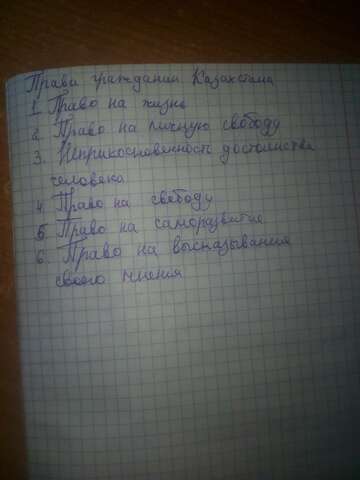 Права гражданина Казахстана
1. Право на жизнь
2. Право на личную свободу
3. Неприкосновенность достоинства
человека
4. Право на свободу
5. Право на саморазвитие
6. Право на высказывания
своего мнения